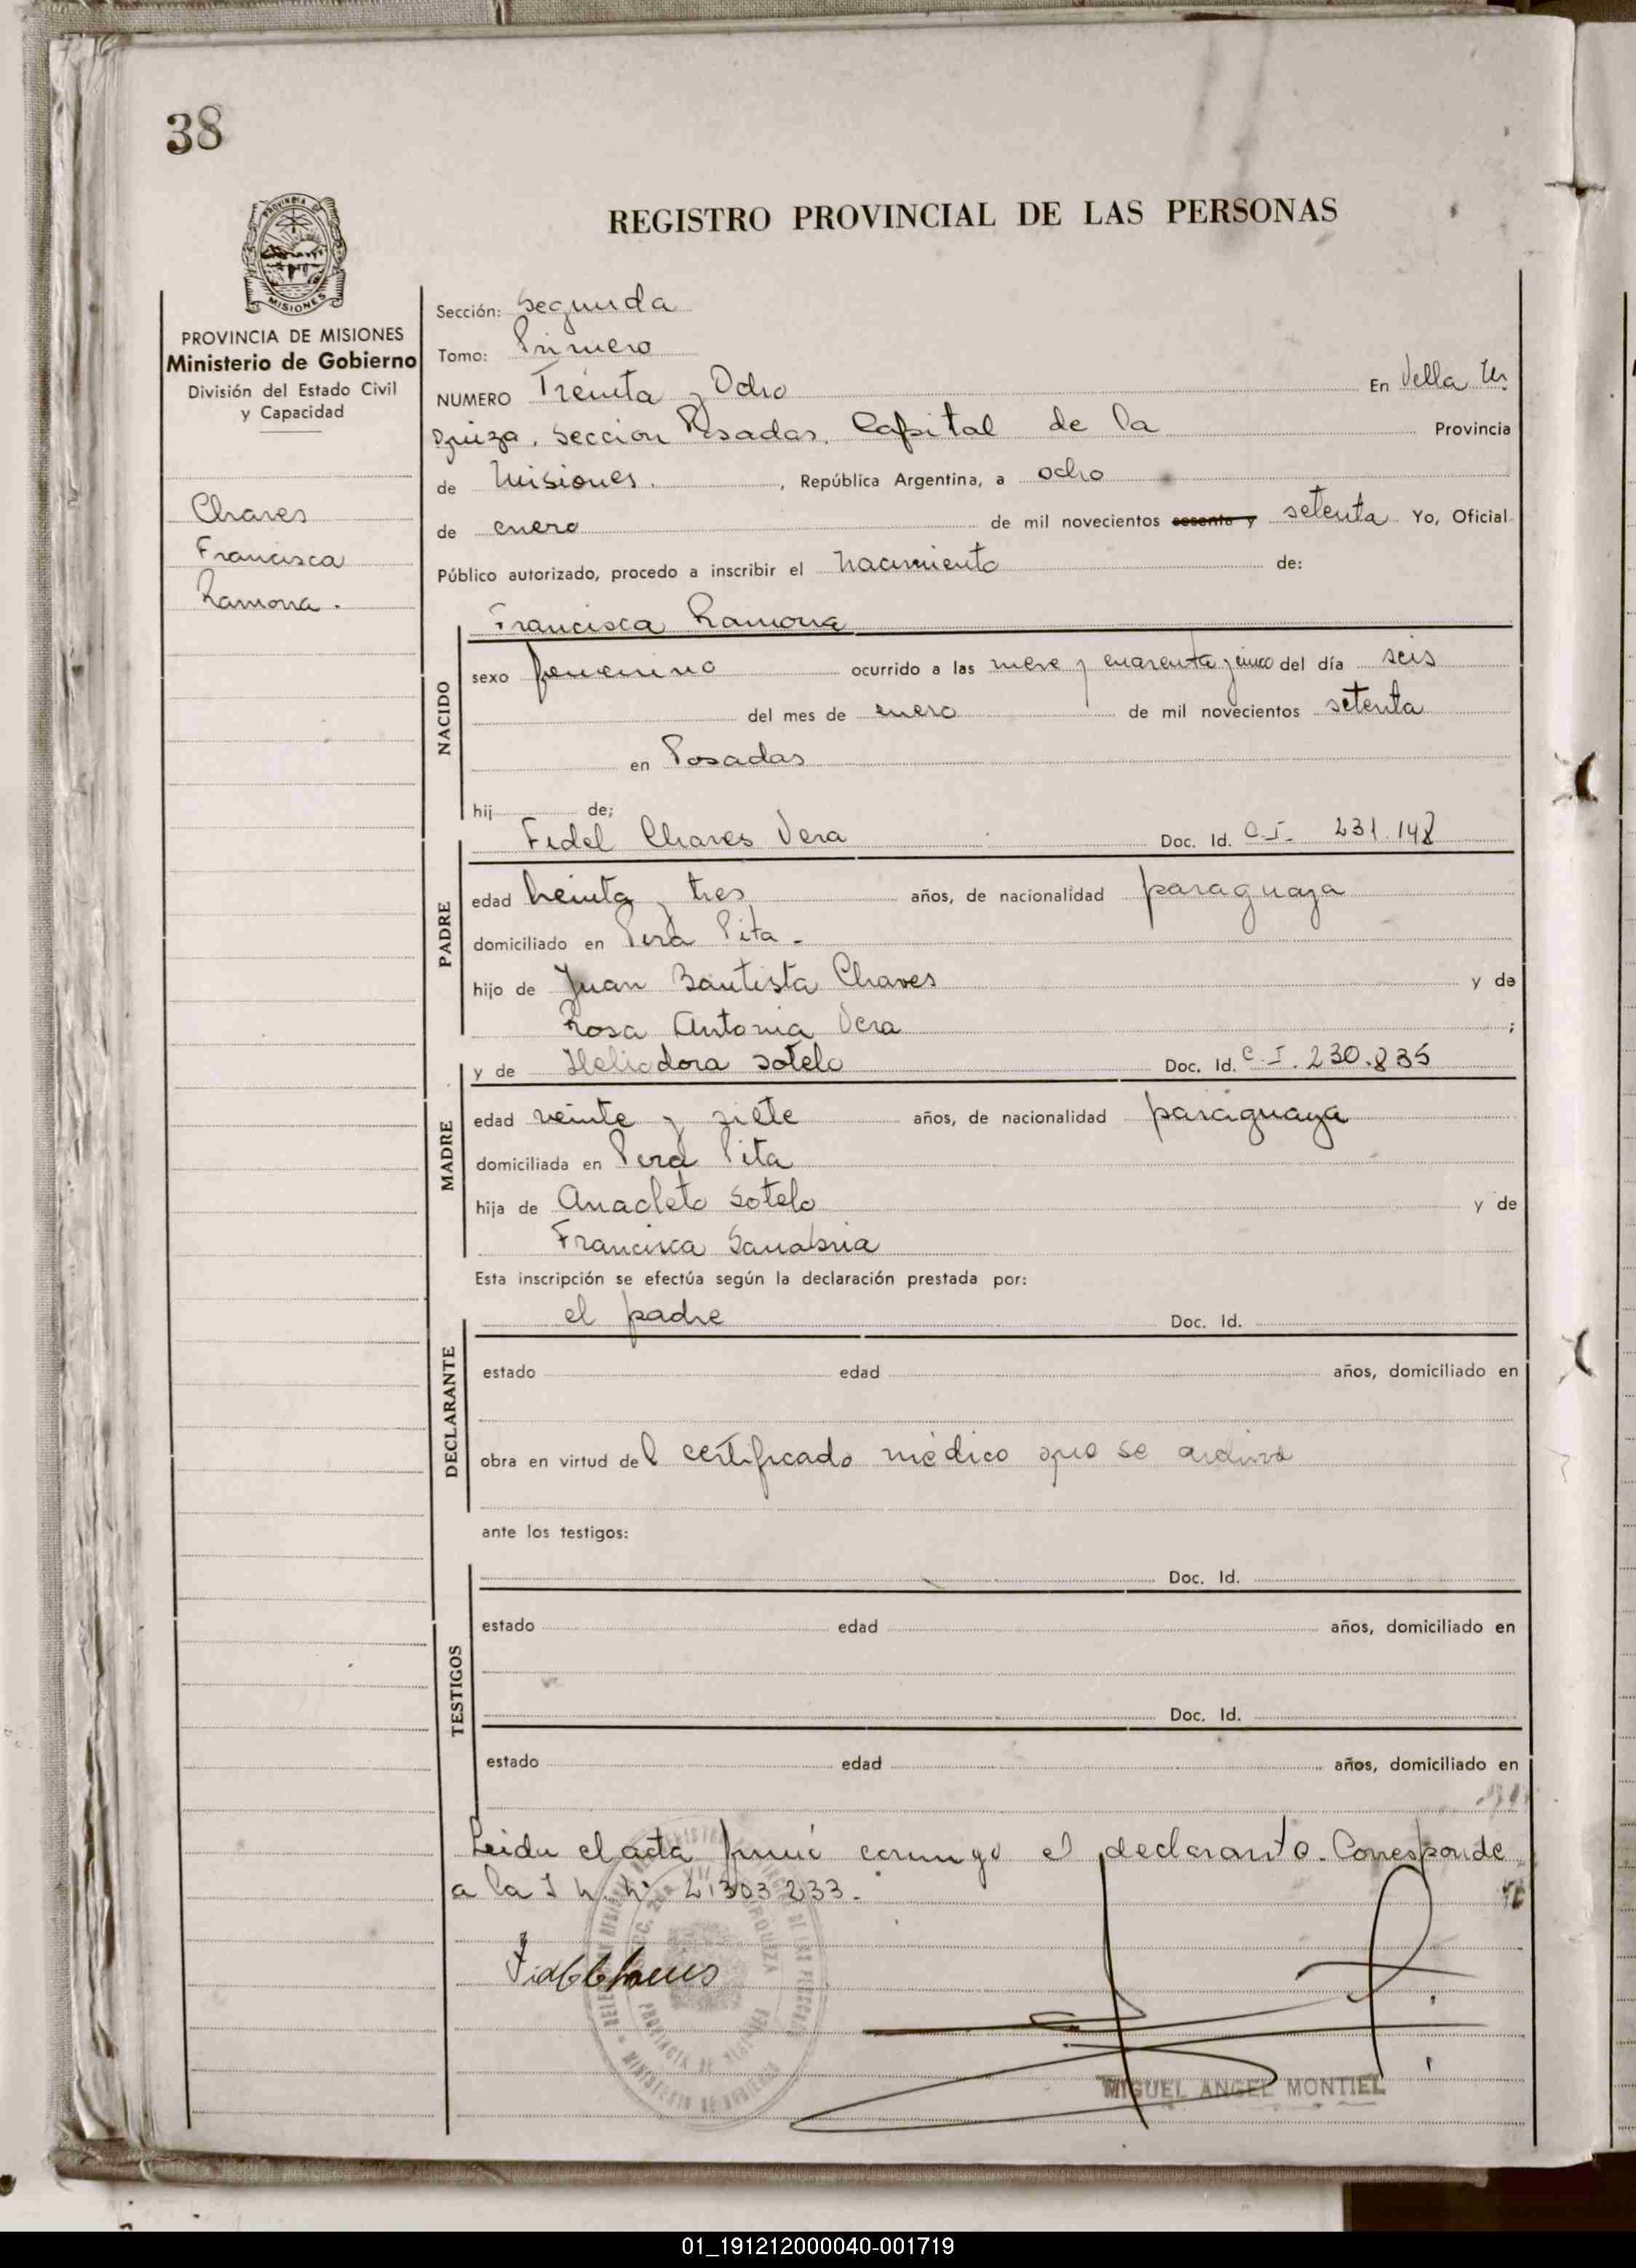 38
PROVINCIA DE
MISIONES
REGISTRO PROVINCIAL DE LAS PERSONAS
PROVINCIA DE MISIONES
Ministerio de Gobierno
División del Estado Civil
y Capacidad
Chaves
Francisca
Ramona.
Sección: Segunda
Tomo: Primero
NUMERO Treinta y Ocho En Villa Ur
quiza, Seccion Posadas, Capital de la Provincia
de Misiones, República Argentina, a ocho
de enero de mil novecientos sesenta y setenta Yo, Oficial
Público autorizado, procedo a inscribir el nacimiento de:
NACIDO
Francisca Ramona
sexo femenino ocurrido a las nueve y cuarenta y cinco del día seis
del mes de enero de mil novecientos setenta
en Posadas
hij de;
PADRE
Fidel Chaves Vera Doc. Id. C.I. 231.148
edad treinta y tres años, de nacionalidad paraguaya
domiciliado en Pirá Pitá.
hijo de Juan Bautista Chaves y de
Rosa Antonia Vera ;
MADRE
y de Heliodora Sotelo Doc. Id. C.I. 230.835
edad veinte y siete años, de nacionalidad paraguaya
domiciliada en Pirá Pitá
hija de Anacleto Sotelo y de
Francisca Sanabria
Esta inscripción se efectúa según la declaración prestada por:
DECLARANTE
el padre Doc. Id.
estado edad años, domiciliado en
obra en virtud del certificado médico que se archiva
ante los testigos:
TESTIGOS
Doc. Id.
estado edad años, domiciliado en
Doc. Id.
estado edad años, domiciliado en
Leida el acta firmó conmigo el declarante. Corresponde
a la 21303233.
PROVINCIA DE MISIONES
MINISTERIO DE GOBIERNO
MIGUEL ANGEL MONTIEL
01_191212000040-001719